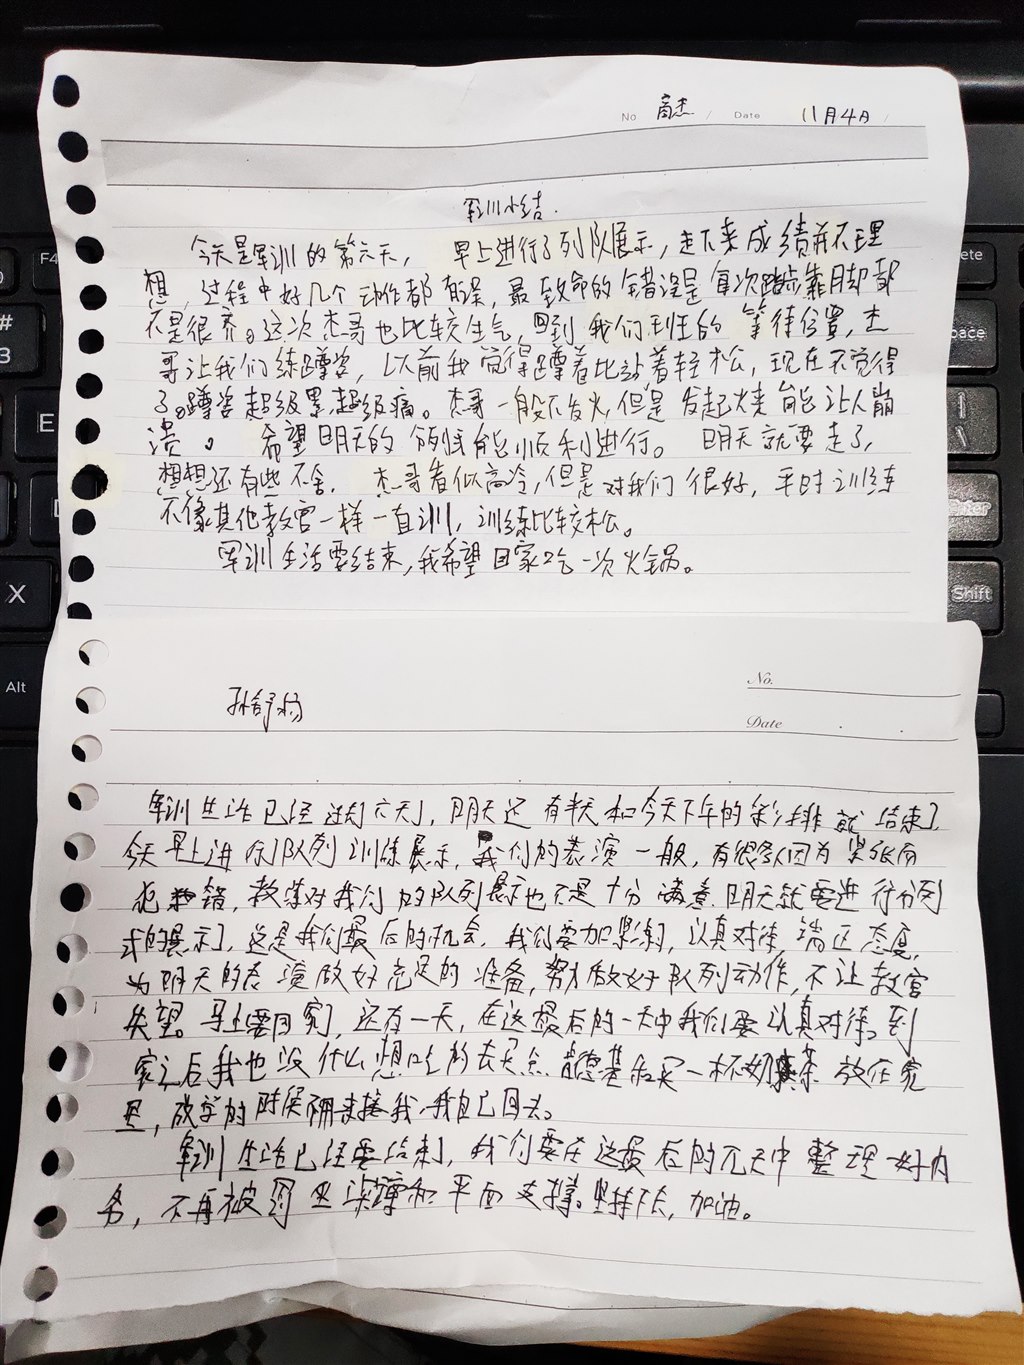 No 高杰 / Date 11月4日 /
军训小结.
今天是军训的第六天, 早上进行了列队展示, 走下来成绩并不理
想, 过程中好几个动作都有误, 最致命的错误是每次踏步靠脚都
不是很齐。这次杰哥也比较生气, 回到我们班的等待位置, 杰
哥让我们练蹲姿, 以前我觉得蹲着比站着轻松, 现在不觉得
了。蹲姿超级累, 超级痛。杰哥一般不发火, 但是发起火能让人崩
溃。 希望明天的分列式能顺利进行。 明天就要走了,
想想还有些不舍. 杰哥看似高冷, 但是对我们很好, 平时训练
不像其他教官一样一直训, 训练比较松。
军训生活要结束, 我希望回家吃一次火锅。
No.
孙舒扬
Date
军训生活已经过了六天了, 明天还有半天和今天下午的彩排就结束了,
今天早上进行了队列训练展示, 我们的表演一般, 有很多人因为紧张而
犯错, 教官对我们的队列展示也不是十分满意. 明天就要进行分列
式的展示了, 这是我们最后的机会. 我们要加紧练习, 认真对待, 端正态度,
为明天的表演做好充足的准备, 努力做好队列动作, 不让教官
失望。马上要回家了, 还有一天, 在这最后的一天中我们要认真对待。到
家之后我也没什么想吃的去买点肯德基和买一杯奶茶放在家
里, 放学的时候不用来接我, 我自己回去。
军训生活已经要结束了, 我们要在这最后的几天中整理好内
务, 不再被罚深蹲和平面支撑。坚持下去, 加油。